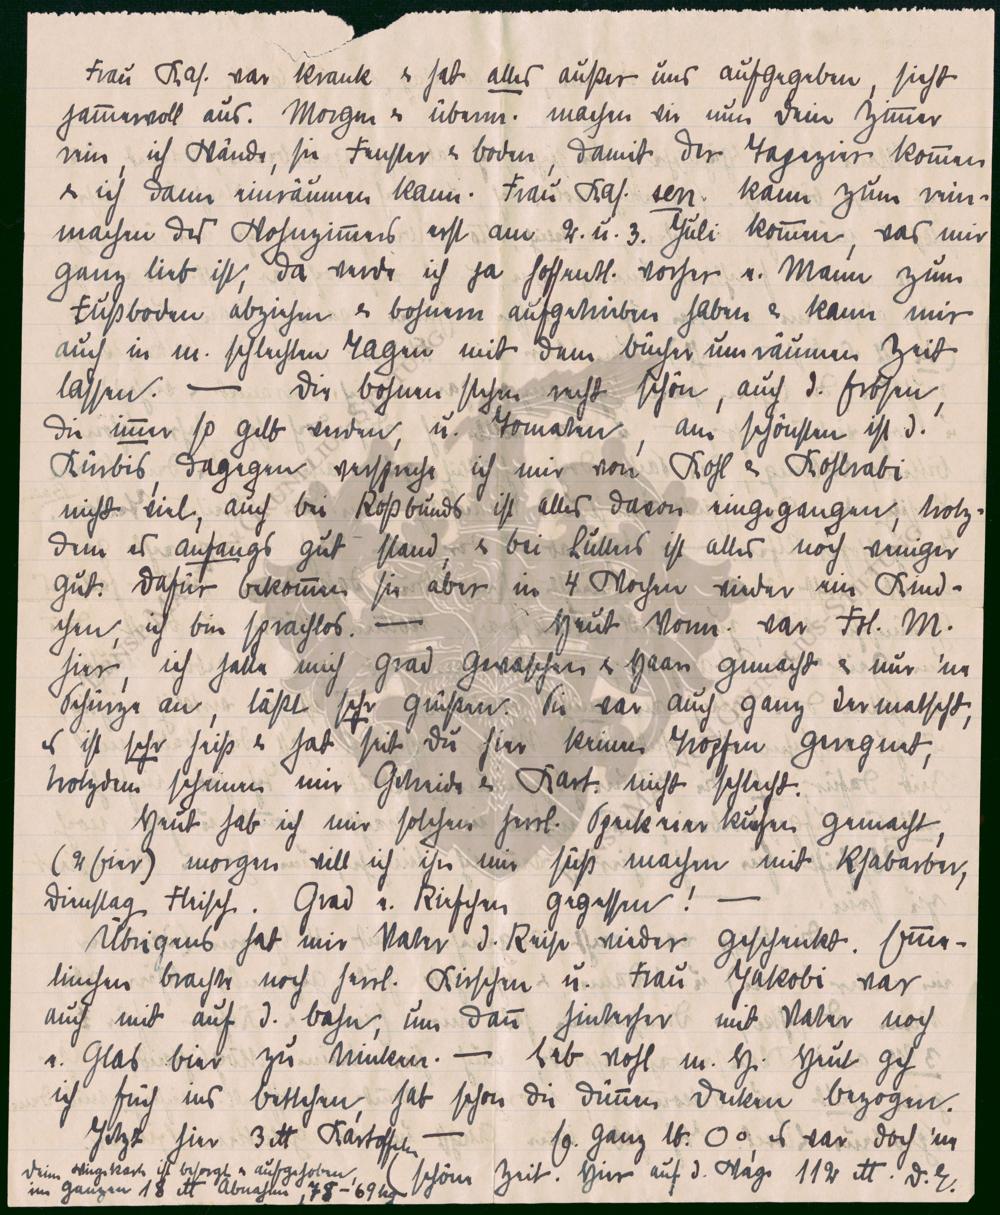 Frau Kas. war krank & hat alles außer uns aufgegeben, sieht
jam̄ervoll aus. Morgen & überm. machen wir nun Dein Zim̄er
rein, ich Wände, sie Fenster & Boden, damit der Tapezier kom̄en
& ich dann einräumen kann. Frau Kas. sen. kann zum rein-
machen des Wohnzim̄ers erst am 2. u. 3. Juli kom̄en, was mir
ganz lieb ist, da werde ich ja hoffentl. vorher e. Mann zum
Fußboden abziehen & bohnern aufgetrieben haben & kann mir
auch in m. schlechten Tagen mit dem Bücher umräumen Zeit
lassen. — Die Bohnen stehen recht schön, auch d. Erbsen,
die im̄er so gelb werden, u. Tomaten, am schönsten ist d.
Kürbis, dagegen verspreche ich mir von Kohl & Kohlrabi
nicht viel, auch bei Roßbunds ist alles davon eingegangen, trotz-
dem es anfangs gut stand, & bei Lullus ist alles noch weniger
gut. Dafür bekom̄en sie aber in 4 Wochen wieder ein Kind-
chen, ich bin sprachlos. — Heut Vorm. war Frl. M.
hier, ich hatte mich grad gewaschen & Haare gemacht & nur 'ne
Schürze an, läßt sehr grüßen. Sie war auch ganz vermatscht,
es ist sehr heiß & hat seit Du hier keinen Tropfen geregnet,
trotzdem scheinen mir Getreide & Kart. nicht schlecht.
Heut hab ich mir solchen herrl. Speckeierkuchen gemacht,
(2 Eier) morgen will ich ihn mir süß machen mit Rhabarber,
Dienstag Fleisch. Grad e. Kirschen gegessen! —
Übrigens hat mir Vater d. Reise wieder geschenkt. Em̄e-
linchen brachte noch herrl. Kirschen u. Frau Jakobi war
auch mit auf d. Bahn, um dan̄ hinterher mit Vater noch
e. Glas Bier zu trinken. — Leb wohl m. H. Heut geh
ich früh ins Bettchen, hab schon die dün̄en Decken bezogen.
Jetzt hier 3 ℔ Kartoffeln — So. ganz lb. Oo es war doch 'ne
schöne Zeit. Hier auf d. Wage 112 ℔. D. E.
Deine ist besorgt & aufgehoben,
im ganzen 18 ℔ Abnahme, 78-69 kg